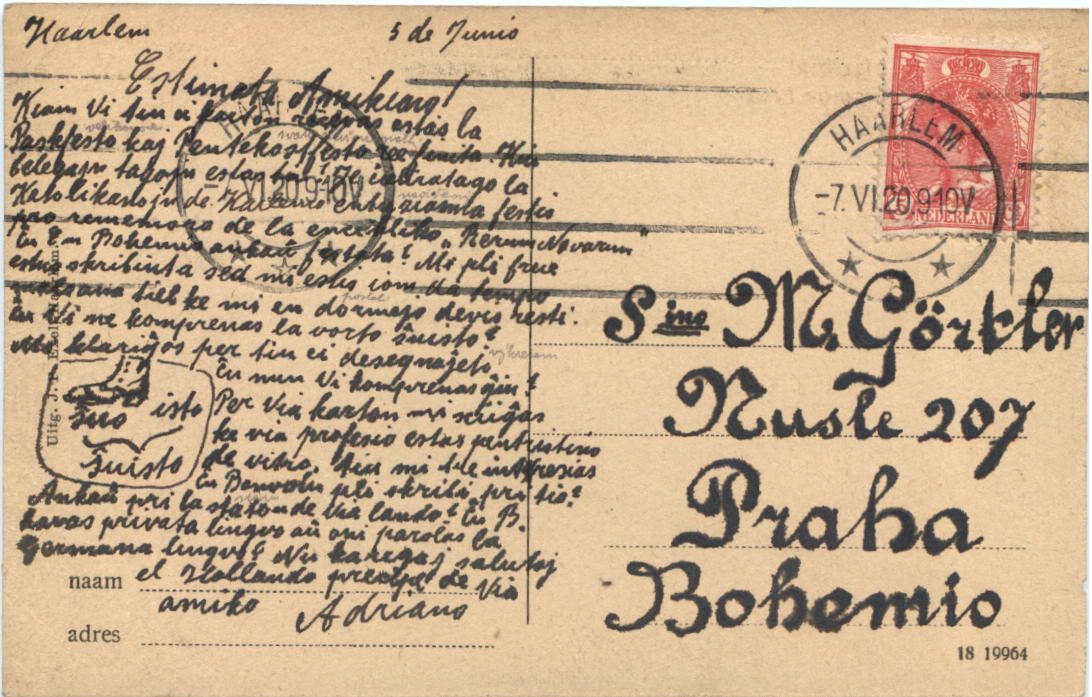 Haarlem 5 de Junio
Estimata Amikino!
Kiam Vi tiun ĉi karton ricevas estas la
Paskfesto kaj Pentekostfesto finita. Kiaj
belegaj tagoj estas
Katolikanoj de festis
pro rememoro de la encikliko „Rerum Novarum"
Ĉu en Bohemio ankaŭ festata? Mi pli frue
estus skribinta sed mi estis iom da tempo
ke mi en dormejo devis resti.
Ĉu Vi ne komprenas la vorto ŝuisto?
Mi klarigos per tiu ĉi desegnaĵeto.
Ĉu nun Vi komprenas ĝin?
Per Via karton mi sciiĝas
ke via profesio estas pentristino
de vitro. Tiu mi tre interesias
Ĉu Bonvolu pli skribi pri tio?
Ankaŭ pri la staton de Via lando? Ĉu B.
havas privata lingvo aŭ oni parolas la
Germana lingvo? Nu karegaj salutoj
el Hollando precipe de Via
amiko Adriano
ŝuo isto
ŝuisto
Uitg. J.
naam
adres
HAARLEM
-7.VI.20.9-10V
NEDERLAND
HAARLEM
-7.VI.20.9-10V
Sino M. Görtler
Nusle 207
Praha
Bohemio
18 19964